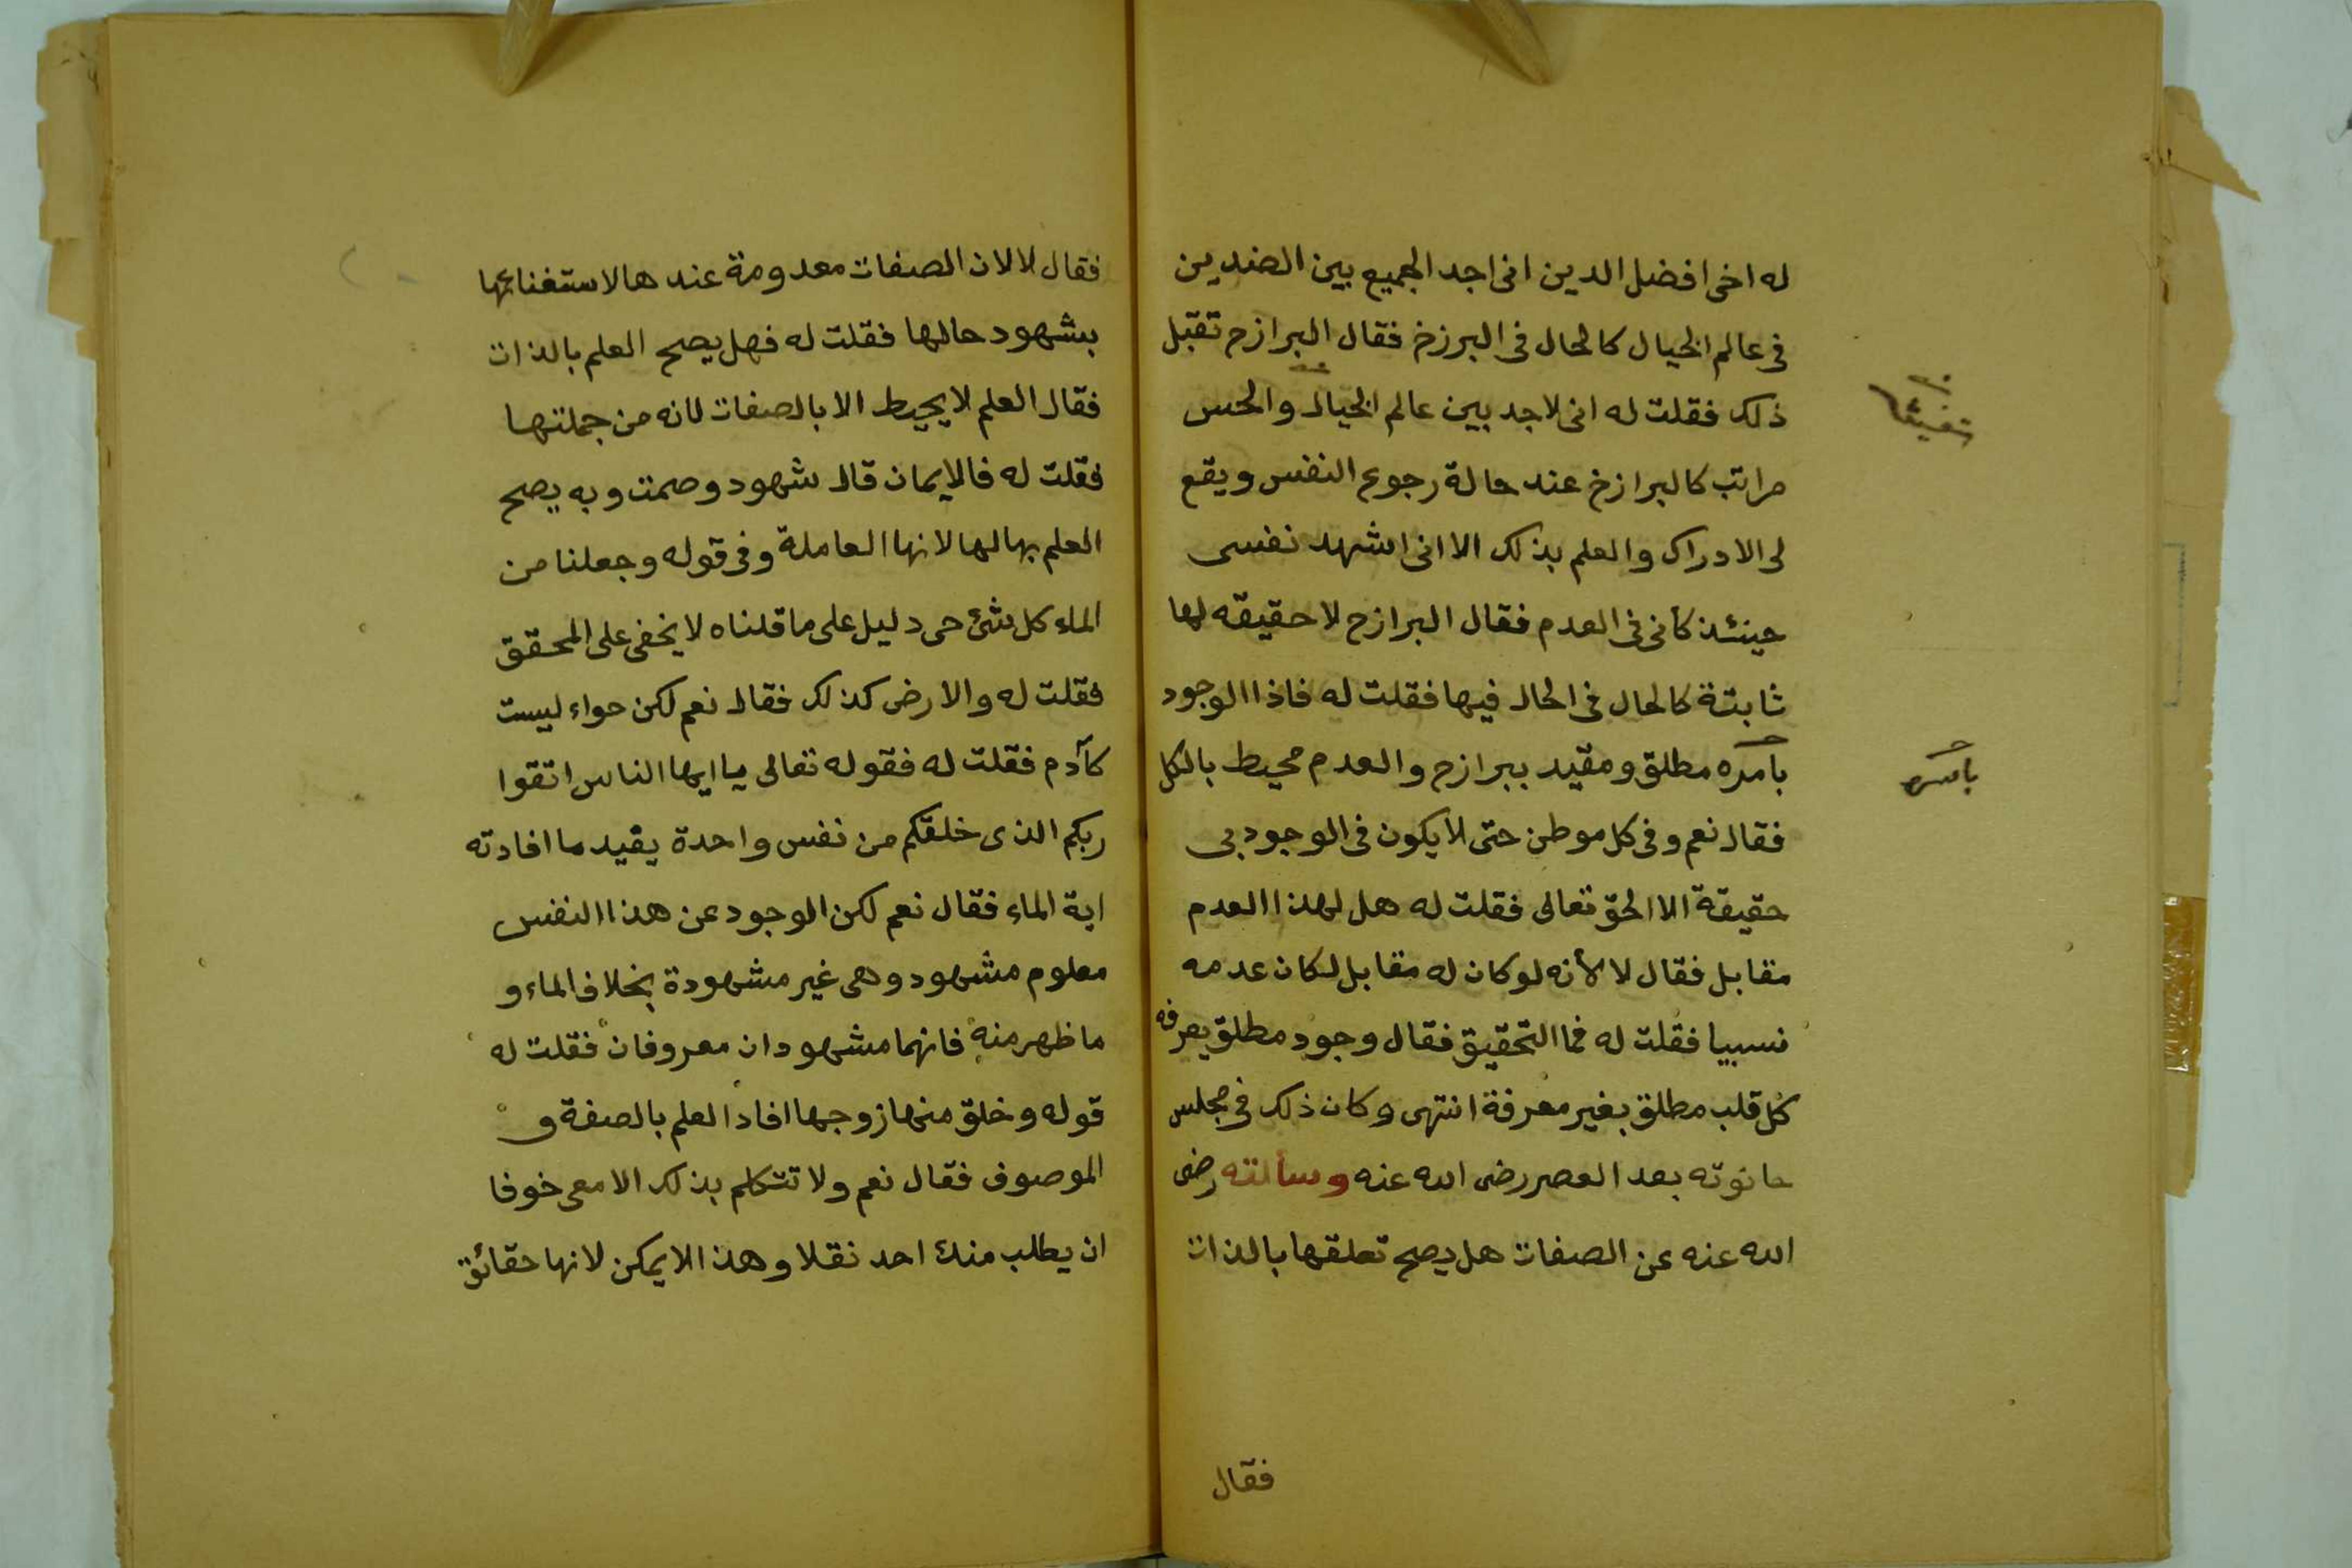 له اخى افضل الدين انى اجد الجميع بين الضدين
فى عالم الخيال كالحال فى البرزخ فقال البرازح تقبل
ذلك فقلت له انى لاجد بين عالم الخيال والحس
مراتب كالبرازخ عند حالة رجوع النفس ويقع
لى الادراك والعلم بذلك الا انى اشهد نفسى
حينئذ كأنى فى العدم فقال البرازح لا حقيقه لها
ثابتة كالحال فى الحال فيها فقلت له فاذا الوجود
بامره مطلق ومقيد ببرازح والعدم محيط بالكل
باسره
فقال نعم وفى كل موطن حتى لا يكون فى الوجود بى
حقيقة الا الحق تعالى فقلت له هل لهذا العدم
مقابل فقال لا لأنه لو كان له مقابل لكان عدمه
نسبيا فقلت له فما التحقيق فقال وجود مطلق يعرفه
كل قلب مطلق بغير معرفة انتهى وكان ذلك فى مجلس
حانوته بعد العصر رضى الله عنه وسألته رضى
الله عنه عن الصفات هل يصح تعلقها بالذات
فقال
فقال لا لان الصفات معدومة عندها لاستغنائها
بشهود حالها فقلت له فهل يصح العلم بالذات
فقال العلم لا يحيط الا بالصفات لانه من جملتها
فقلت له فالايمان قال شهود وصمت وبه يصح
العلم بها لها لانها العاملة وفى قوله وجعلنا من
الماء كل شئ حى دليل على ما قلناه لا يخفى على المحقق
فقلت له والارض كذلك فقال نعم لكن حواء ليست
كآدم فقلت له فقوله تعالى يا ايها الناس اتقوا
ربكم الذى خلقكم من نفس واحدة يقيد ما افادته
اية الماء فقال نعم لكن الوجود عن هذا النفس
معلوم مشهود وهى غير مشهودة بخلاف الماء و
ما ظهر منه فانهما مشهودان معروفان فقلت له
قوله وخلق منها زوجها افاد العلم بالصفة و
الموصوف فقال نعم ولا تتكلم بذلك الا معى خوفا
ان يطلب منك احد نقلا وهذا لا يمكن لانها حقائق